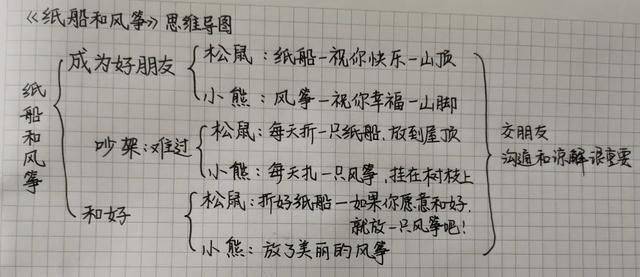 《纸船和风筝》思维导图
纸船和风筝
成为好朋友
松鼠：纸船—祝你快乐—山顶
小熊：风筝—祝你幸福—山脚
吵架：难过
松鼠：每天折一只纸船，放到屋顶
小熊：每天扎一只风筝，挂在树枝上
和好
松鼠：折好纸船—如果你愿意和好，
就放一只风筝吧！
小熊：放了美丽的风筝
交朋友
沟通和谅解很重要